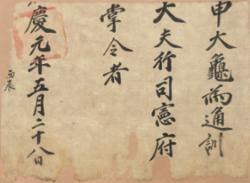 申大龜為通訓
大夫行司憲府
掌令者
慶元年五月二十八日
丙辰